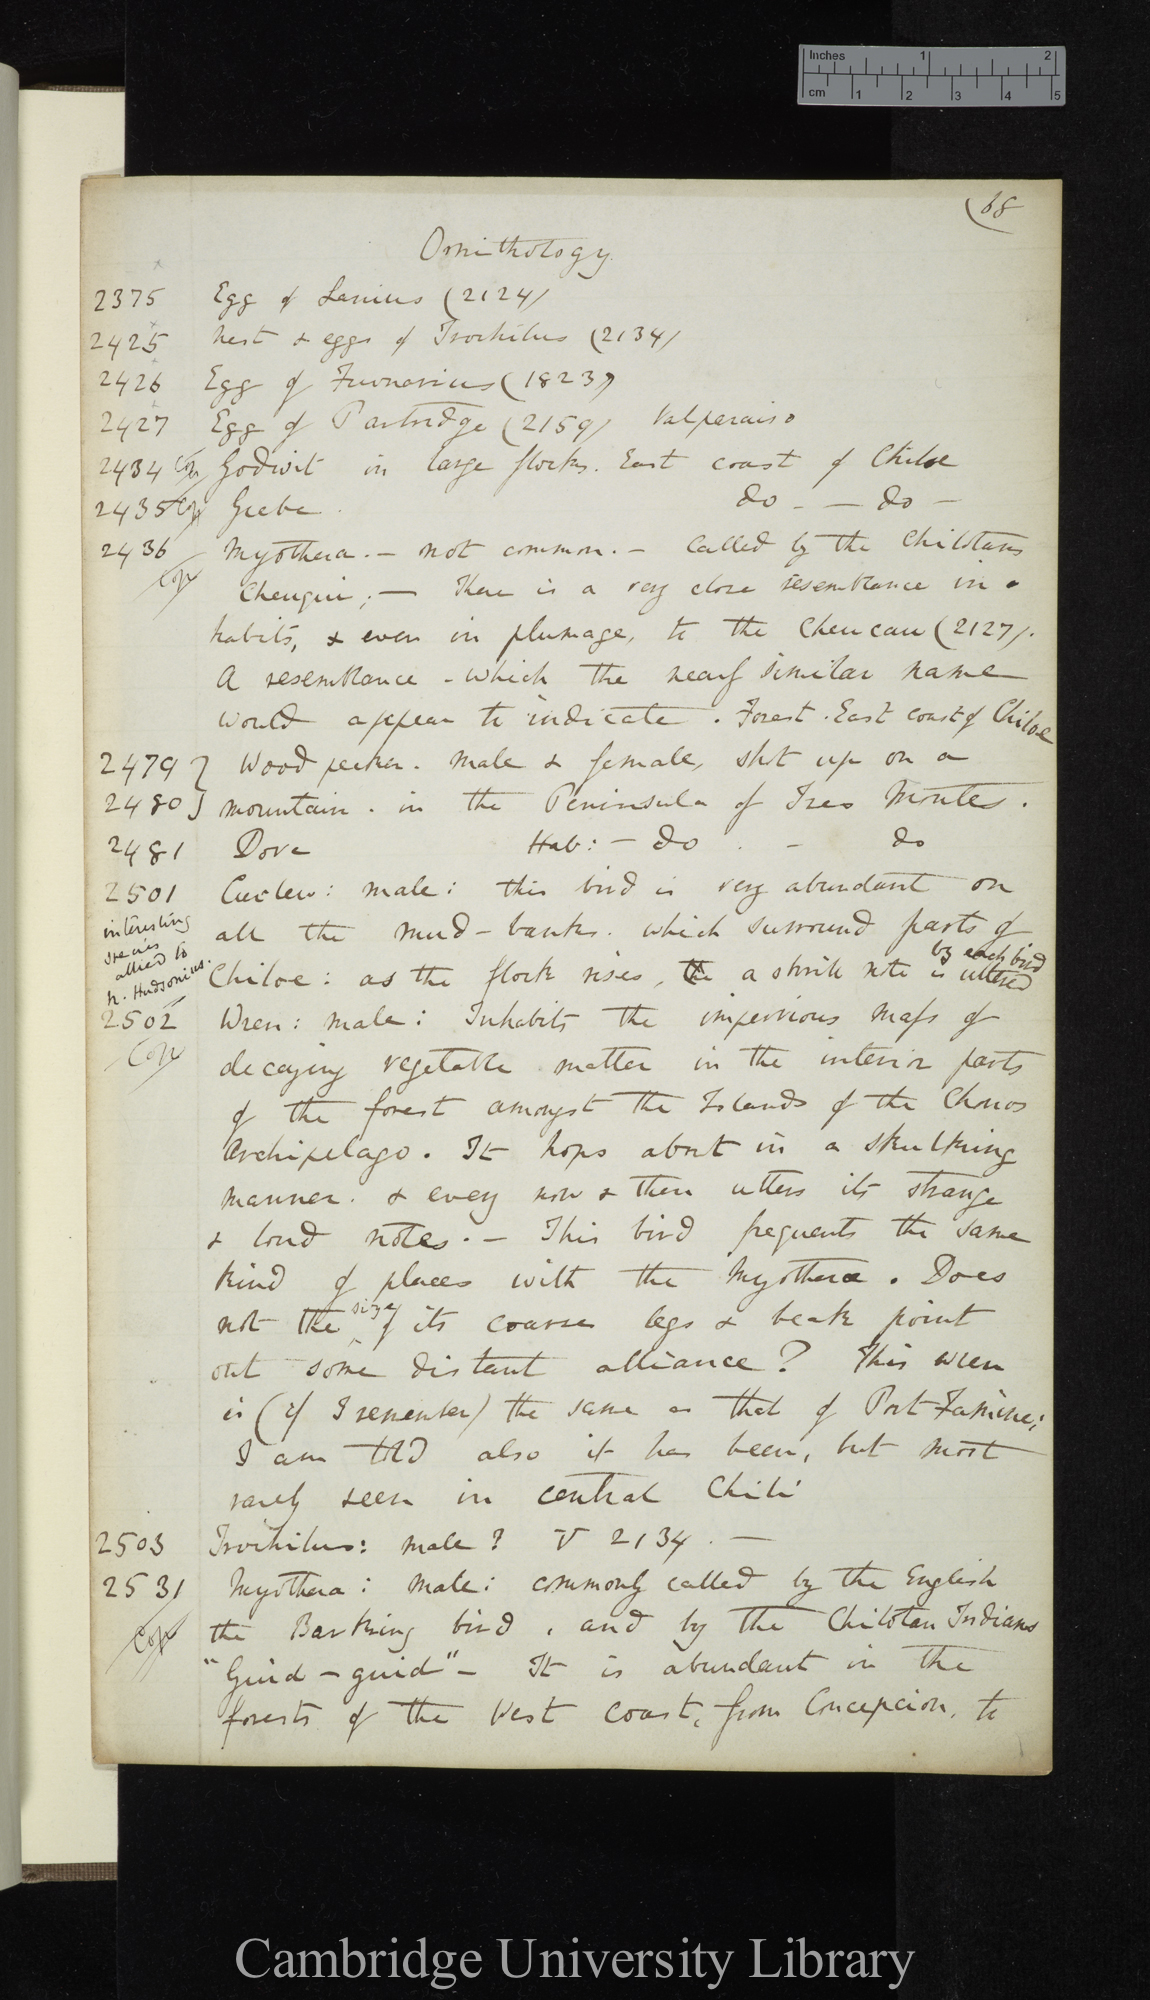 Inches 1 2
cm 1 2 3 4 5
(68
Ornithology
2375 Egg of Lanius (2124)
2425 Nest & eggs of Trochilus (2134)
2426 Egg of Furnarius (1823)
2427 Egg of Partridge (2159) Valparaiso
2434 Copy Godwit in large flocks. East coast of Chiloe
2435 Copy Grebe. do - — do —
2436 Myothera. — not common. — Called by the Chilotans
Copy Cheuqui; — There is a very close resemblance in
habits, & even in plumage, to the Cheucau (2127).
A resemblance - which the nearly similar name
would appear to indicate. Forest. East coast of Chiloe
2479 } Wood pecker. male & female, shot up on a
2480 } mountain. in the Peninsula of Tres Montes.
2481 Dove Hab: — do . - do
2501 Curlew: male: this bird is very abundant on
interesting
species
allied to
N. Hudsonicus.
all the mud-banks. which surround parts of
by each bird
Chiloe: as the flock rises, the a shrill note is uttered
2502 Wren: male: Inhabits the impervious mass of
Copy decaying vegetable matter in the interior parts
of the forest amongst the Islands of the Chonos
Archipelago. It hops about in a skulking
manner. & every now & then utters its strange
& loud notes. — This bird frequents the same
kind of places with the Myothera. Does
not the size of its coarse legs & beak point
out some distant alliance? This wren
is (if I remember) the same as that of Port Famine;
I am told also it has been, but most
rarely seen in central Chili
2503 Trochilus: male? V 2134. —
2531 Myothera: male: commonly called by the English
Copy the Barking bird, and by the Chilotan Indians
"Guid-guid" — It is abundant in the
forests of the West coast, from Concepcion, to
Cambridge University Library